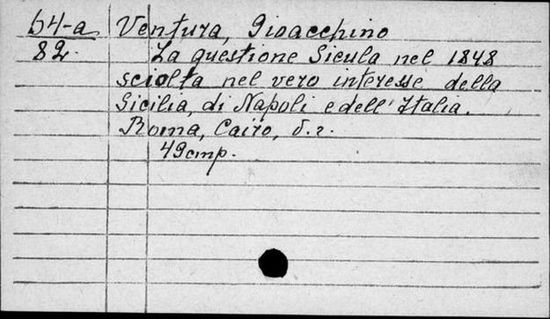 64-a Ventura, Gioacchino
82. La questione Sicula nel 1848
sciolta nel vero interesse della
Sicilia, di Napoli e dell'Italia.
Roma, Cairo, б.г.
49 cmp.